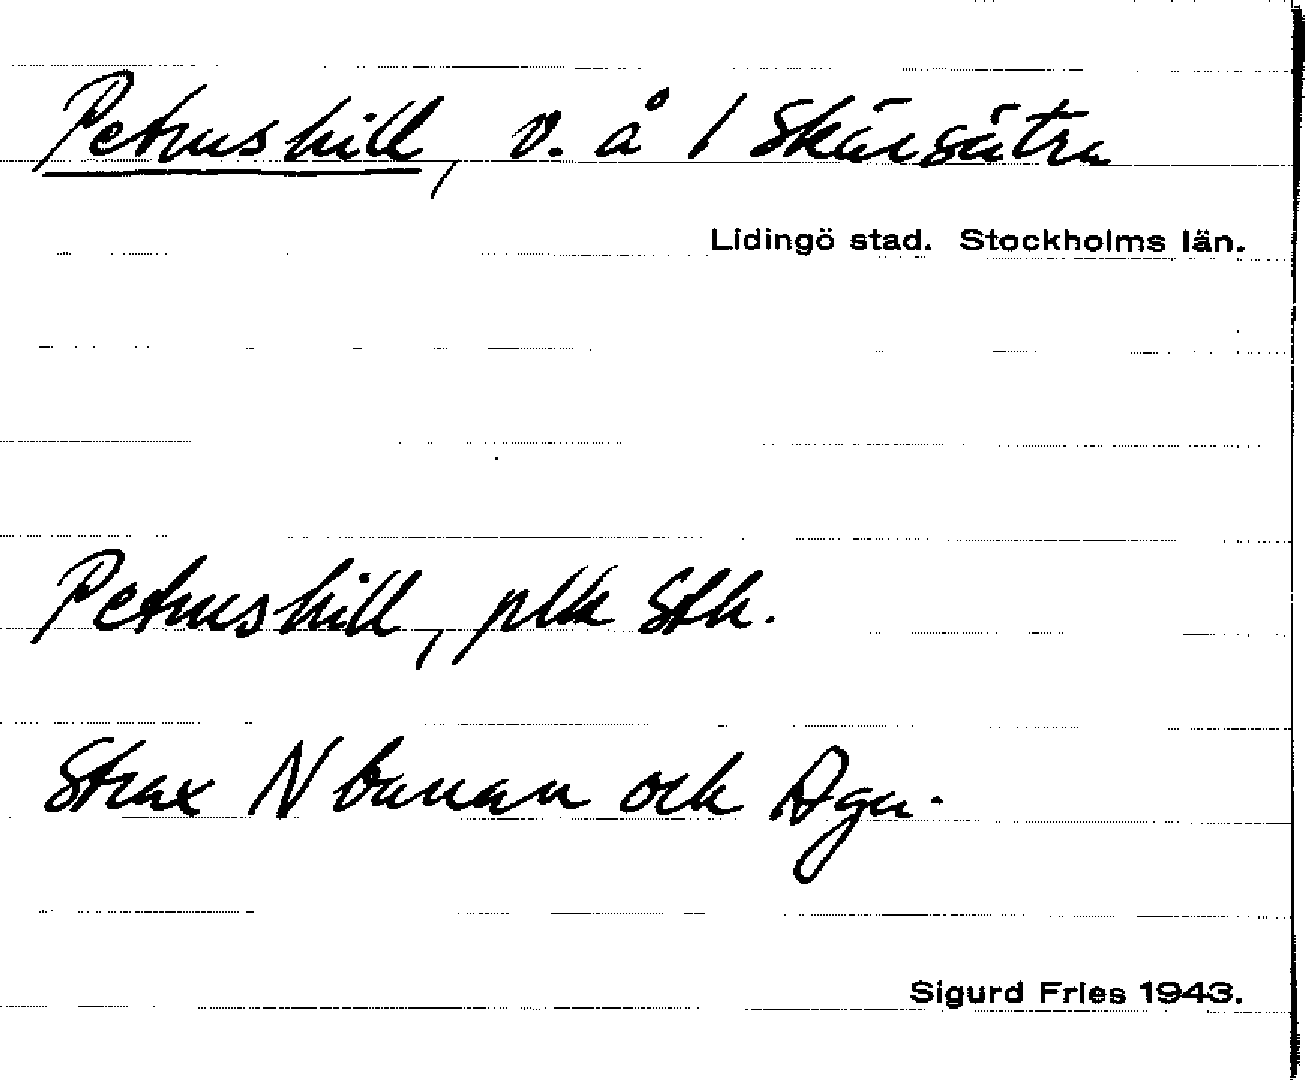 Petrushill, v. å 1 Skärsätra
Lidingö stad. Stockholms län.
Petrushill, plk Stk.
Strax N banan och Aga.
Sigurd Fries 1943.